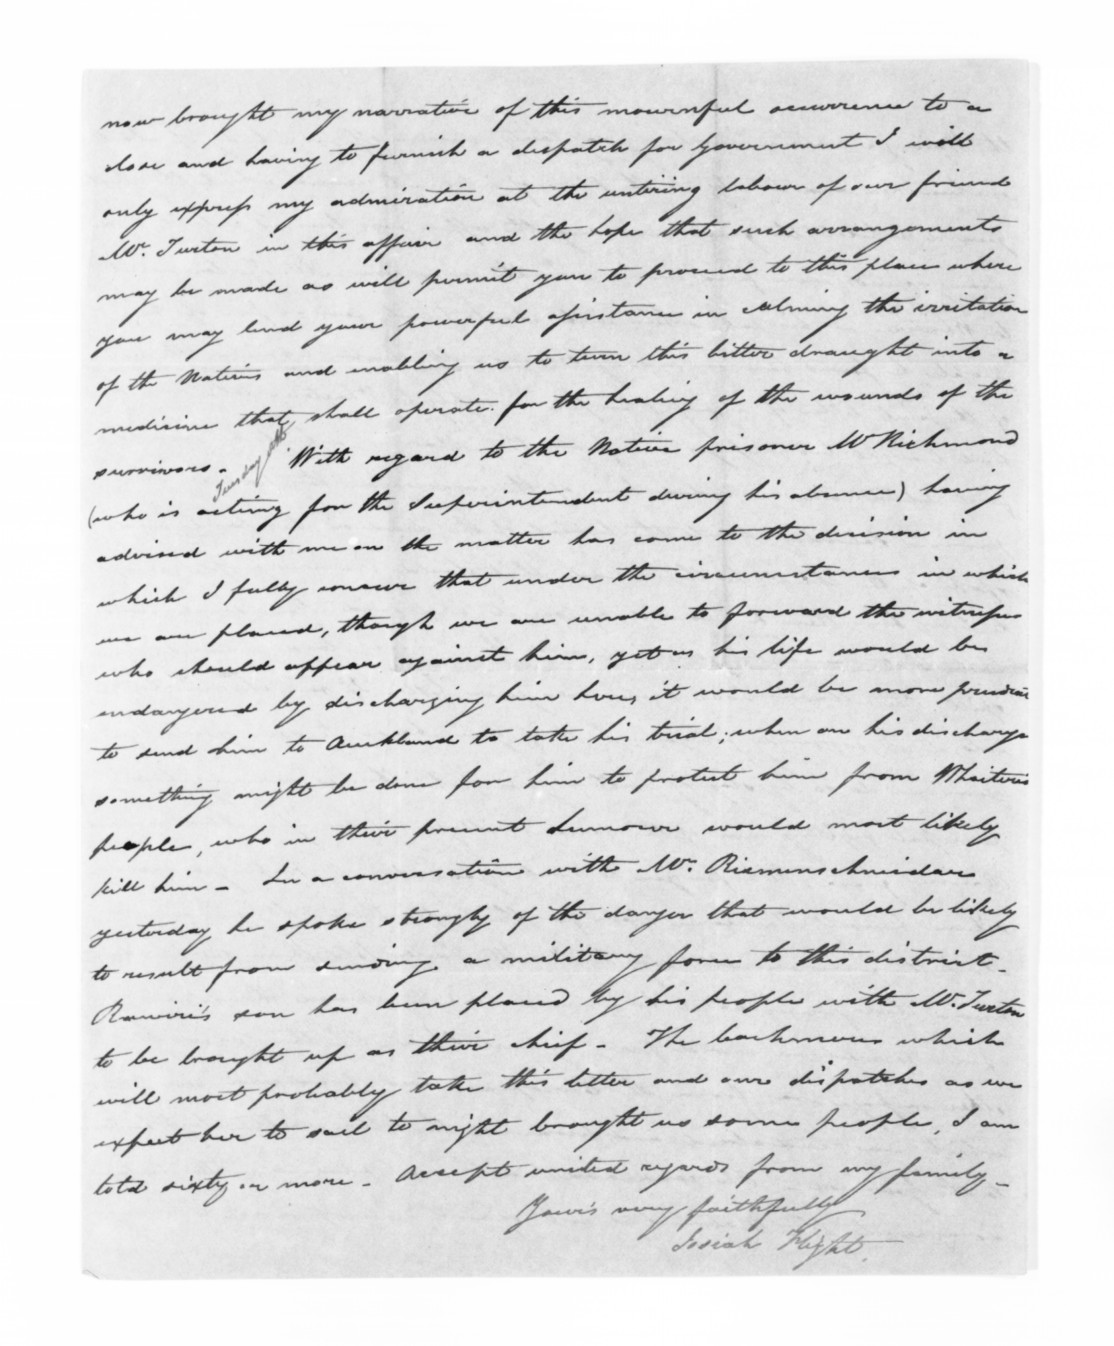 now brought my narrative of this mournful occurrence to a
close and having to furnish a dispatch for Government I will
only express my admiration at the untiring labour of our friend
Mr. Turton in this affair and the hope that such arrangements
may be made as will permit you to proceed to this place where
you may lend your powerful assistance in calming the irritation
of the Natives and enabling us to turn this bitter draught into a
medicine that shall operate for the healing of the wounds of the
survivors. Tuesday With regard to the Native prisoner Mr Richmond
(who is acting for the Superintendent during his absence) having
advised with me on the matter has come to the decision in
which I fully concur that under the circumstances in which
we are placed, though we are unable to forward the witnesses
who should appear against him, yet as his life would be
endangered by discharging him here, it would be more prudent
to send him to Auckland to take his trial; when on his discharge
something might be done for him to protect him from Whiteris
people, who in their present humour would most likely
kill him - In a conversation with Mr. Riemenschneidar
yesterday he spoke strongly of the danger that would be likely
to result from sending a military force to this district -
Rawiri's son has been placed by his people with Mr. Turton
to be brought up as their chief - The which
will most probably take this letter and our dispatches as we
expect her to sail to night brought us some people, I am
told sixty or more - Accept united regards from my family -
Your's very faithfully
Josiah Flight.